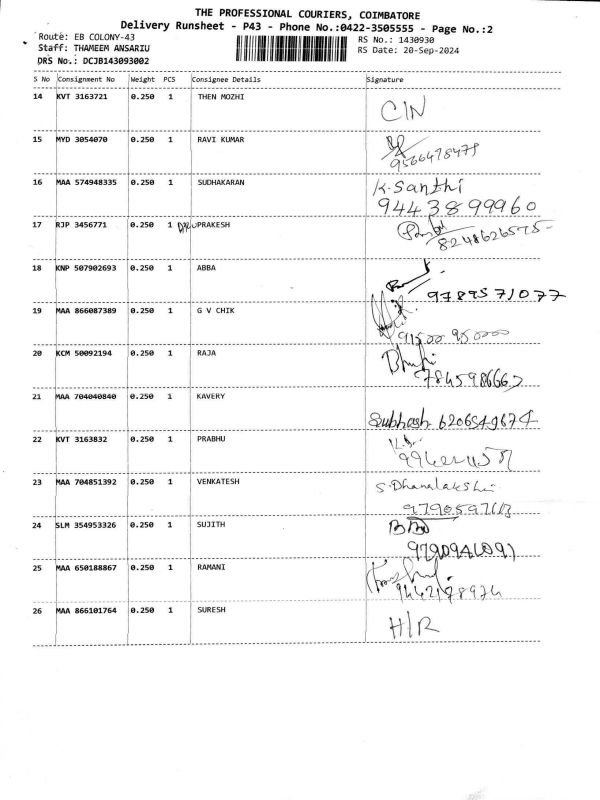 THE PROFESSIONAL COURIERS, COIMBATORE
Delivery Runsheet - P43 - Phone No.:0422-3505555 - Page No.:2
Route: EB COLONY-43 RS No.: 1430930
Staff: THAMEEM ANSARIU RS Date: 20-Sep-2024
DRS No.: DCJB143093002
S No Consignment No Weight PCS Consignee Details Signature
14 KVT 3163721 0.250 1 THEN MOZHI C/N
15 MYD 3054070 0.250 1 RAVI KUMAR 9566478479
16 MAA 574948335 0.250 1 SUDHAKARAN K. Santhi
9443899960
17 RJP 3456771 0.250 1 PRAKESH 8248626575
18 KNP 507902693 0.250 1 ABBA 9789571077
19 MAA 866087389 0.250 1 G V CHIK
20 KCM 50092194 0.250 1 RAJA
21 MAA 704040840 0.250 1 KAVERY Subhash 6206549674
22 KVT 3163832 0.250 1 PRABHU
23 MAA 704851392 0.250 1 VENKATESH S. Dhanalakshi
24 SLM 354953326 0.250 1 SUJITH
25 MAA 650188867 0.250 1 RAMANI 9442178974
26 MAA 866101764 0.250 1 SURESH H/R